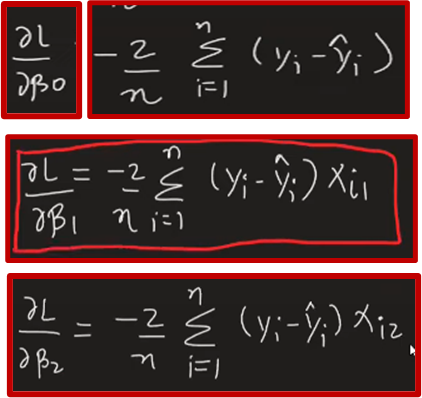 ∂L/∂β0 -2/n Σ_{i=1}^{n} (yi - ŷi)
∂L/∂β1 = -2/n Σ_{i=1}^{n} (yi - ŷi) Xi1
∂L/∂β2 = -2/n Σ_{i=1}^{n} (yi - ŷi) Xi2